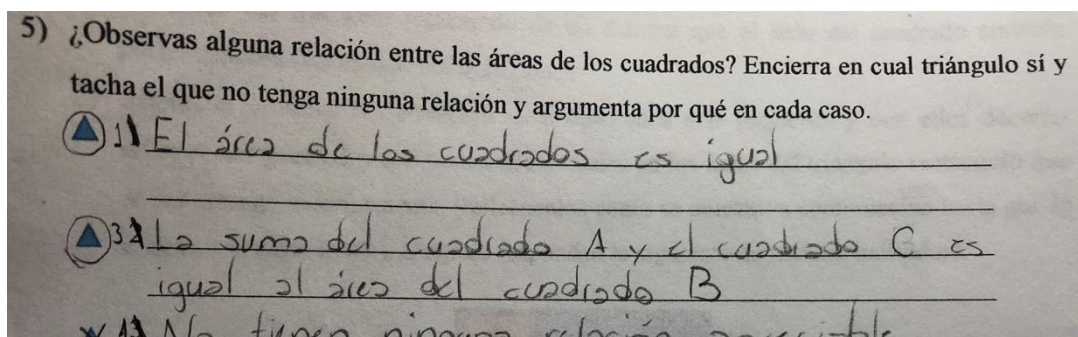 5) ¿Observas alguna relación entre las áreas de los cuadrados? Encierra en cual triángulo sí y
tacha el que no tenga ninguna relación y argumenta por qué en cada caso.
1) El área de los cuadrados es igual
3) La suma del cuadrado A y el cuadrado C es
igual al área del cuadrado B
No tienen ninguna relación